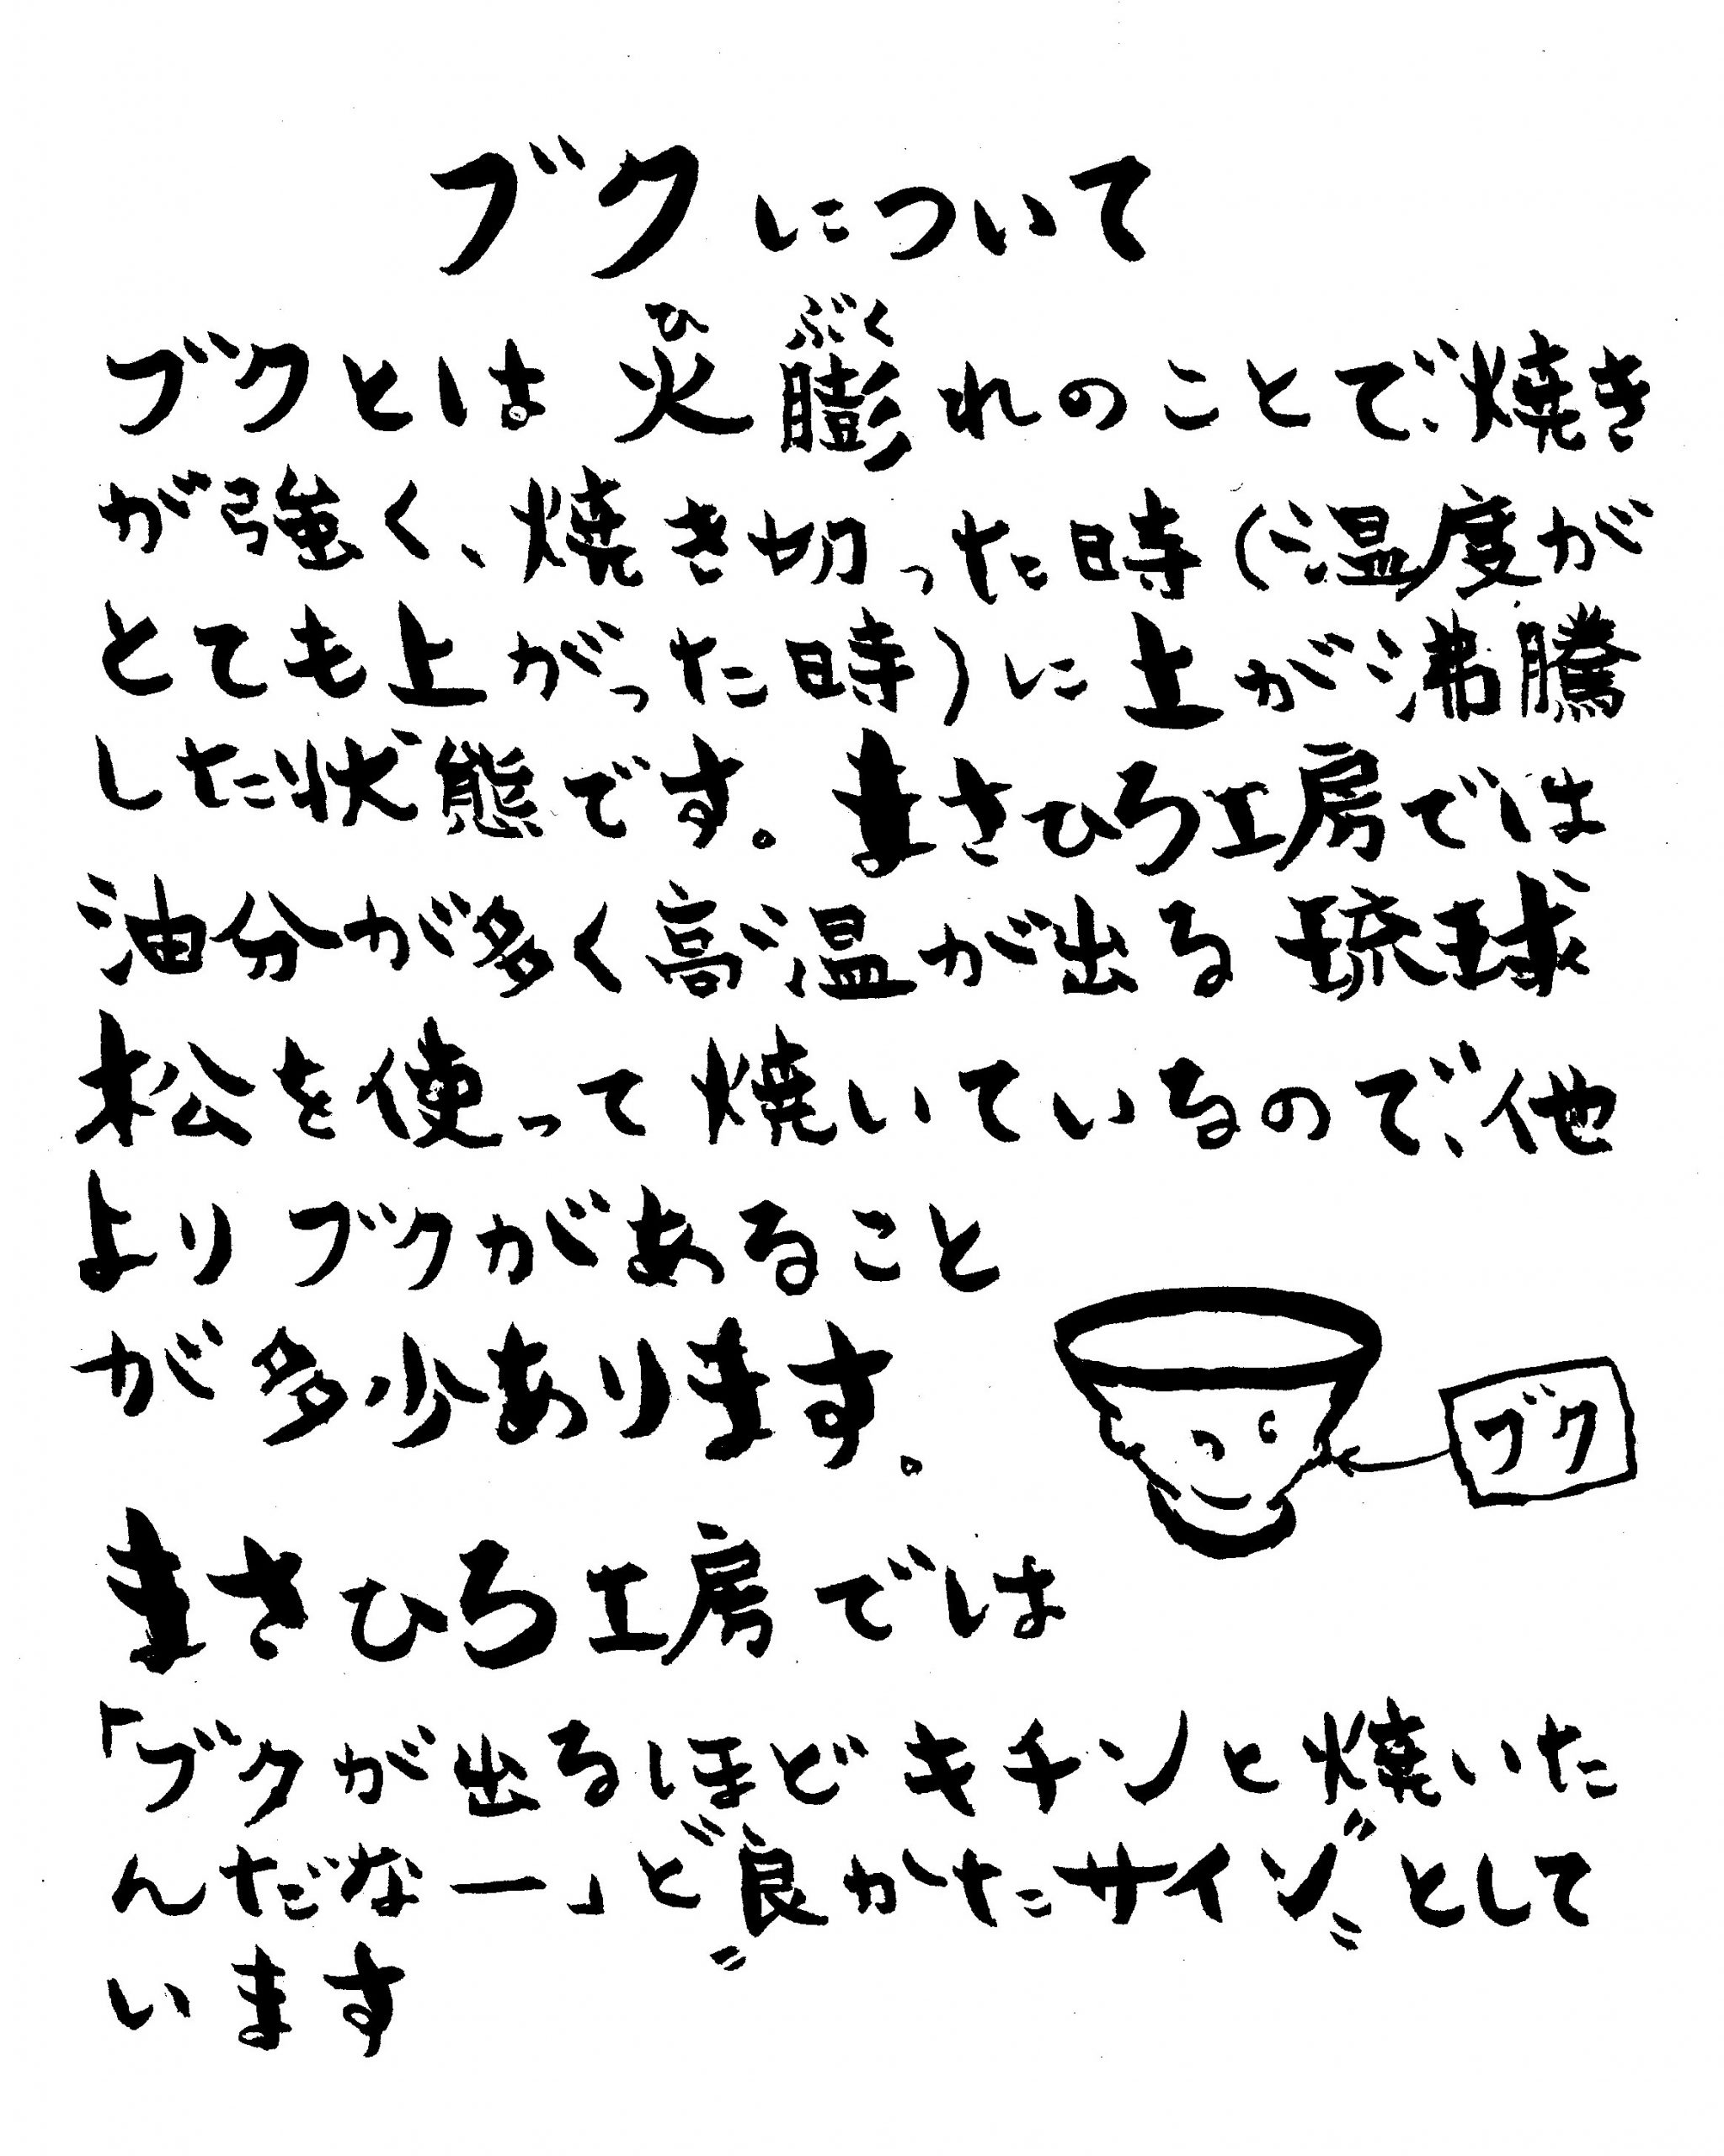 ブクについて
ひ ぶく
ブクとは火膨れのことで、焼き
が強く、焼き切った時(温度が
とても上がった時)に土が沸騰
した状態です。まさひろ工房では
油分が多く高温が出る琉球
松を使って焼いているので、他
よりブクがあること
が多少あります。
ブク
まさひろ工房では
「ブクが出るほどキチンと焼いた
んだなー」ど〝良かたサイン〟として
います